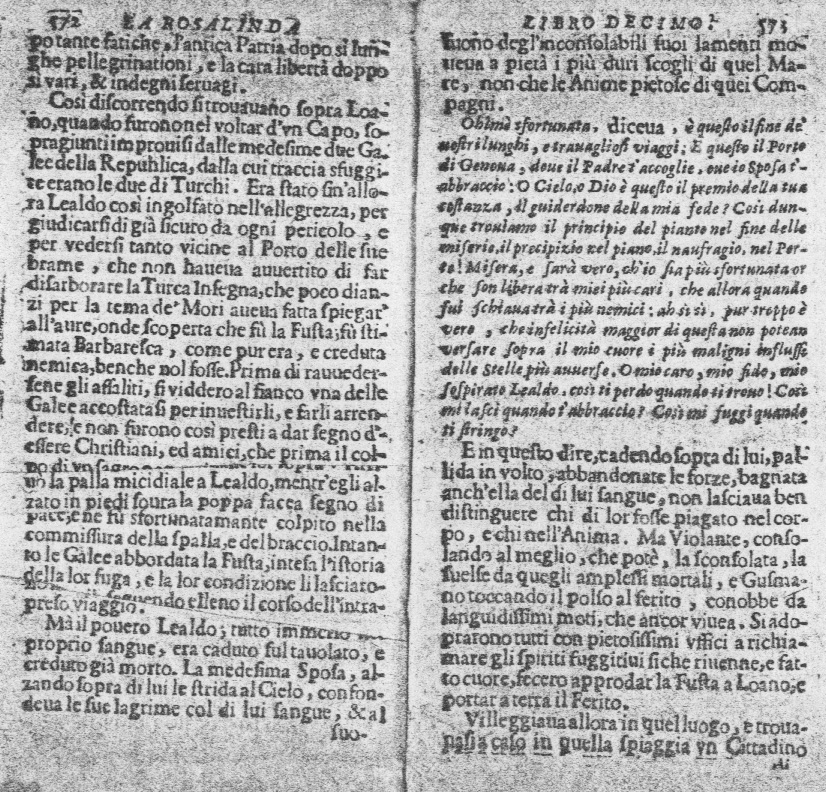 572 LA ROSALINDA
po tante fatiche, l'antica Patria dopo sì lun-
ghe pellegrinationi, e la cara libertà doppo
sì vari, & indegni seruagi.
Così discorrendo si trouauano sopra Loa-
no, quando furono nel voltar d'vn Capo, so-
pragiunti improuisi dalle medesime due Ga-
lee della Republica, dalla cui traccia sfuggi-
te erano le due di Turchi. Era stato sin'allo-
ra Lealdo così ingolfato nell'allegrezza, per
giudicarsi di già sicuro da ogni pericolo, e
per vedersi tanto vicine al Porto delle sue
brame, che non haueua auuertito di far
disarborare la Turca Insegna, che poco dian-
zi per la tema de' Mori aueua fatta spiegar
all'aure, onde scoperta che fù la Fusta, fù sti-
mata Barbaresca, come pur era, e creduta
nemica, benche nol fosse. Prima di rauueder-
sene gli assaliti, si viddero al fianco vna delle
Galee accostatasi per inuestirli, e farli arren-
dere, e non furono così presti a dar segno d'-
essere Christiani, ed amici, che prima il col-
po di vn
nò la palla micidiale a Lealdo, mentr'egli al-
zato in piedi soura la poppa facea segno di
pace, che fù sfortunatamante colpito nella
commissura della spalla, e del braccio. Intan-
to le Galee abbordata la Fusta, intesa l'istoria
della lor fuga, e la lor condizione li lasciaro-
seguendo elleno il corso dell'intra-
preso viaggio.
Mà il pouero Lealdo, tutto immerso nel
proprio sangue, era caduto sul tauolato, e
creduto già morto. La medesima Sposa, al-
zando sopra di lui le strida al Cielo, confon-
deua le sue lagrime col di lui sangue, & al
suo-
LIBRO DECIMO. 573
suono degl'inconsolabili suoi lamenti mo-
ueua a pietà i più duri scogli di quel Ma-
re, non che le Anime pietose di quei Com-
pagni.
Ohimè sfortunata, diceua, è questo il fine de'
nostri lunghi, e trauagliosi viaggi; E questo il Porto
di Genoua, doue il Padre t'accoglie, oue io Sposa t'-
abbraccio: O Cielo, o Dio è questo il premio della tua
costanza, il guiderdone della mia fede? Così dun-
que trouiamo il principio del pianto nel fine delle
miserie, il precipizio nel piano, il naufragio, nel Por-
to! Misera, e sarà vero, ch'io sia più sfortunata or
che son libera trà miei più cari, che allora quando
fui schiaua trà i più nemici: ah si sì, pur troppo è
vero, che infelicità maggior di questa non potean
versare sopra il mio cuore i più maligni influssi
delle Stelle più auuerse. O mio caro, mio fido, mio
sospirato Lealdo, così ti perdo quando ti trouo! Così
mi lasci quando t'abbraccio? Così mi fuggi quando
ti stringo?
E in questo dire, cadendo sopra di lui, pal-
lida in volto, abbandonate le forze, bagnata
anch'ella del di lui sangue, non lasciaua ben
distinguere chi di lor fosse piagato nel cor-
po, e chi nell'Anima. Ma Violante, conso-
lando al meglio, che potè, la sconsolata, la
suelse da quegli amplessi mortali, e Gusma-
no toccando il polso al ferito, conobbe da
languidissimi moti, che ancor viuea. Si ado-
prarono tutti con pietosissimi vffici a richia-
mare gli spiriti fuggitiui siche riuenne, e fat-
to cuore, fecero approdar la Fusta a Loano, e
portar a terra il Ferito.
Villeggiaua allora in quel luogo, e troua-
uasi a caso in quella spiaggia vn Cittadino
di